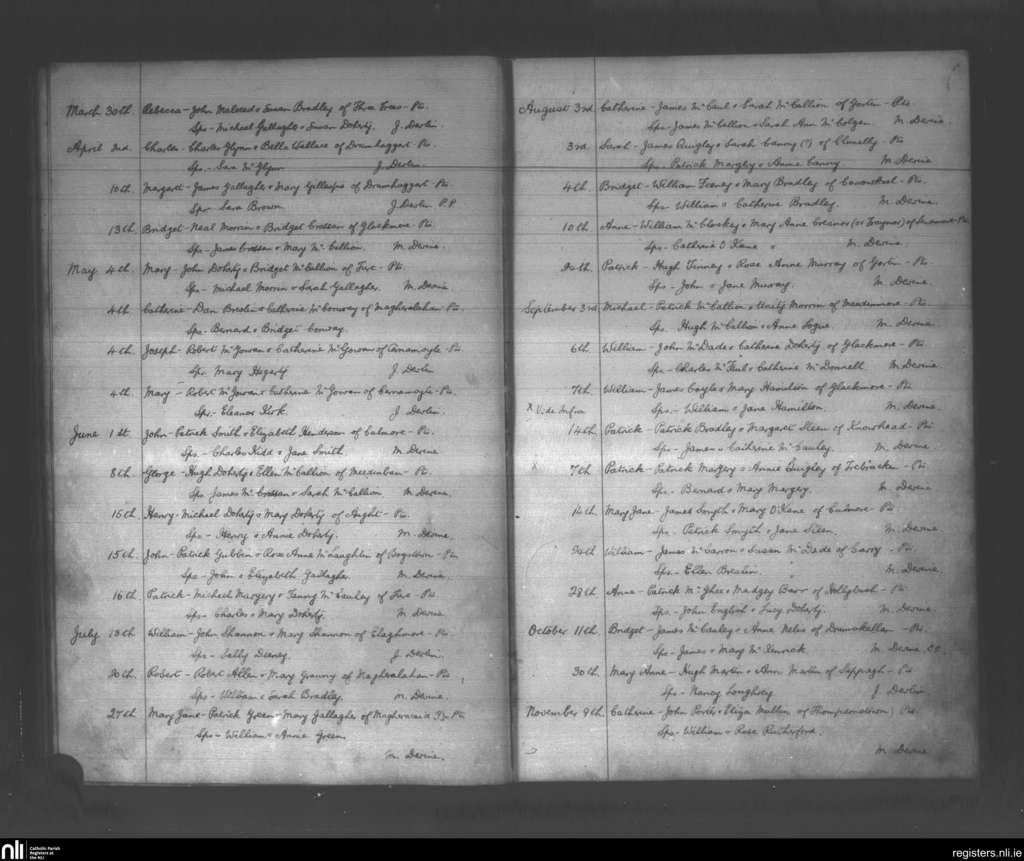 March 30th Rebecca - John Malseed & Susan Bradley of Three Trees - Ptr.
Sps - Michael Gallagher & Susan Doherty. J. Devlin.
April 2nd. Charles - Charles Glynn & Bella Wallace of Drumhaggart Ptr.
Sps - Sara McGlynn J. Devlin
10th. Margaret - James Gallagher & Mary Gillespie of Drumhaggart Ptr
Spr - Sara Brown J. Devlin P.P.
13th. Bridget - Neal Morrin & Bridget Crossan of Glackmore - Ptr
Sps - James Crossan & Mary McCallion. M. Devine.
May 4th. Mary - John Doherty & Bridget McCallion of - Ptr.
Sps - Michael Morrin & Sarah Gallagher. M. Devine.
4th. Catherine - Dan Breslin & Catherine McConway of - Ptr
Sps - Bernard & Bridget Conway.
4th. Joseph - Robert McGowan & Catherine McGowan of - Ptr.
Spr Mary Hegerty J. Devlin
4th. Mary - Robert McGowan & Catherine McGowan of - Ptr.
Spr - Eleanor Kirk. J. Devlin.
June 1st. John - Patrick Smith & Elizabeth Henderson of Culmore - Ptr.
Sps - Charles Kidd & Jane Smith. M. Devine
8th. George - Hugh Doherty & Ellen McCallion of - Ptr.
Sps James McCrossan & Sarah McCallion M. Devine.
15th. Henry - Michael Doherty & Mary Doherty of Aught - Ptr.
Sps - Henry & Annie Doherty. M. Devine.
15th. John - Patrick Gubbin & Rose Anne McLaughlin of - Ptr
Sps - John & Elizabeth Gallagher. M. Devine.
16th. Patrick - Michael Margery & Fanny McCauley of - Ptr.
Sps - Charles & Mary Doherty. M. Devine
July 13th William - John Shannon & Mary Shannon of Elaghmore - Ptr.
Sps - Sally Deeney. J. Devlin.
20th. Robert - Robert Allen & Mary Granny of - Ptr
Sps - William & Sarah Bradley. M. Devine.
27th Mary Jane - Patrick Green & Mary Gallagher of - Ptr
Sps - William & Annie Green
M. Devine.
August 3rd. Catherine - James McCaul & Sarah McCallion of Gortin - Ptr.
Sps - James McCallion & Sarah Ann McColgan. M. Devine.
3rd. Sarah - James Quigley & Sarah Canny (?) of - Ptr
Sps - Patrick Margey & Annie Canny. M. Devine
4th. Bridget - William Feeney & Mary Bradley of - Ptr.
Sps - William & Catherine Bradley. M. Devine.
10th Anne - William McCloskey & Mary Anne Creanor (or Traynor) of - Ptr
Sps - Catherine O'Kane M. Devine.
20th. Patrick - Hugh Tinney & Rose Anne Murray of Gortin - Ptr.
Sps - John & Jane Murray. M. Devine.
September 3rd Michael - Patrick McCallion & Unity Morrin of - Ptr.
Sps. Hugh McCallion & Anne Logue. M. Devine.
6th. William - John McDade & Catherine Doherty of Glackmore - Ptr.
Sps - Charles McFaul & Catherine McDonnell M. Devine.
7th. William - James Coyle & Mary Hamilton of Glackmore - Ptr
x Vide Infra Sps. - William & Jane Hamilton. M. Devine.
14th. Patrick - Patrick Bradley & Margaret Steen of Knowhead - Ptr
Sps - James & Catherine McCauley. M. Devine
x 7th. Patrick - Patrick Margery & Annie Quigley of - Ptr
Sps. - Bernard & Mary Margery. M. Devine
14th Mary Jane - James Smyth & Mary O'Kane of Culmore - Ptr
Sps. Patrick Smyth & Jane Steen. M. Devine.
24th William - James McCarron & Susan McDade of Carry - Ptr.
Sps. - Ellen Breslin. M. Devine.
28th Anne - Patrick McGhee & Madgey Barr of Hollybush - Ptr
Sps. - John English & Lucy Doherty. M. Devine.
October 11th. Bridget - James McCauley & Anne Nelis of Drumskellan - Ptr.
Sps - James & Mary McKinnick M. Devine. CC.
30th. Mary Anne - Hugh Martin & Ann Mullen of Soppagh - Ptr
Sps - Nancy Loughrey J. Devlin
November 9th. Catherine - John Porter & Eliza Mullen of - Ptr.
Sps - William & Rose Rutherford.
M. Devine
nli Catholic Parish
Registers at
the NLI
registers.nli.ie